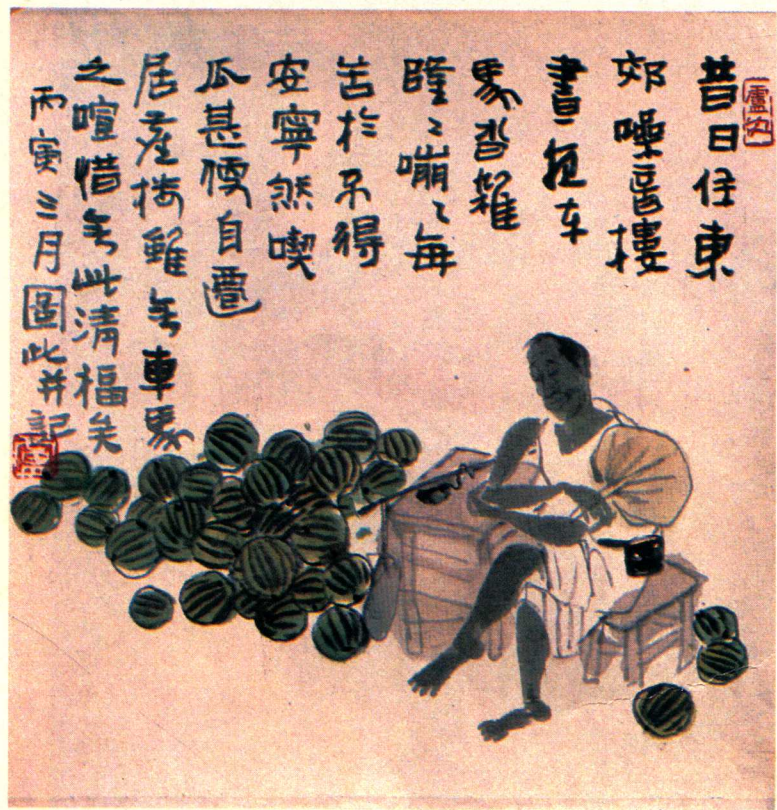 昔日住東
郊噪音樓
晝夜车
馬沓雜
嘣〻每
苦於不得
安寧然喫
瓜甚便自遷
居樓雖無車馬
之喧惜無此清福矣
丙寅三月圖此并記